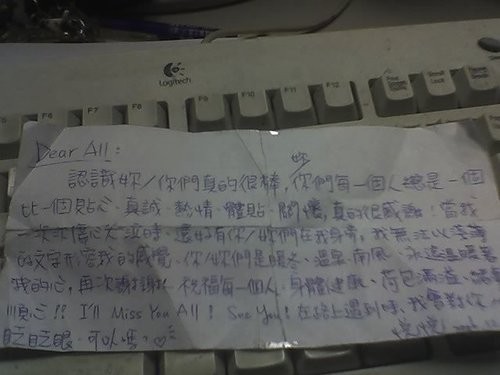 Logitech
F6
F7
F8
F9
F10
F11
F12
Print Screen
Scroll Lock
Dear All:
妳
認識妳/你們真的很棒,你們每一個人總是一個
比一個貼心、真誠、熱情、體貼、關懷,真的很感謝!當我
信心 時,還好有你/妳們在我身旁,我無法以
的文字形容我的感覺,你/妳們是暖冬、溫 南風,永遠
我的心,再次謝謝 祝福每一個人,身體健康、荷包滿溢、
順心!! I'll Miss You All! See You! 在路上遇到時,我會對你
眨眨眼,可以嗎?